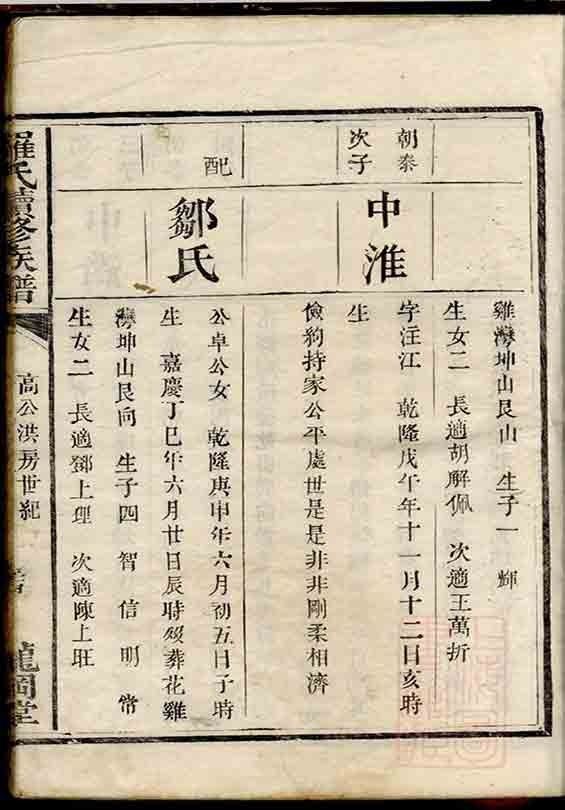 雞灣坤山艮山 生子一 輝
生女二 長適胡解佩 次適王萬折
朝泰
次子
中淮
字注江 乾隆戊午年十一月十二日亥時
生
儉約持家公平處世是是非非剛柔相濟
配
鄒氏
公卓公女 乾隆庚申年六月初五日子時
生 嘉慶丁巳年六月廿日辰時歿葬花雞
灣坤山艮向 生子四 智 信 明 常
生女二 長適鄧上理 次適陳上旺
羅氏續修族譜
高公洪房世紀
龍岡堂